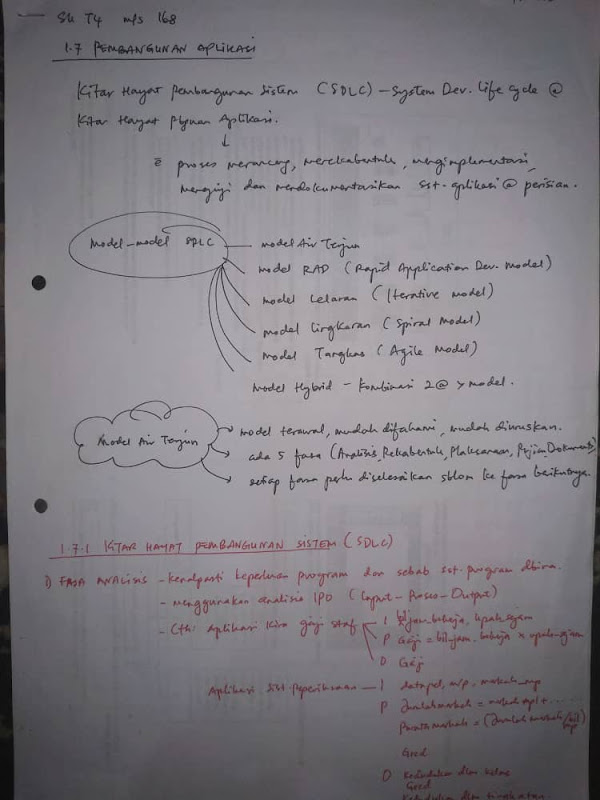 Sk T4 m/s 168
1.7 PEMBANGUNAN APLIKASI
Kitar Hayat Pembangunan Sistem (SDLC) – System Dev. Life Cycle @
Kitar Hayat Aplikasi.
↓
proses merancang, merekabentuk, mengimplementasi,
menguji dan mendokumentasikan sst. aplikasi @ perisian.
Model-model SDLC
model Air Terjun
model RAD (Rapid Application Dev. Model)
model Lelaran (Iterative model)
model Lingkaran (Spiral Model)
model Tangkas (Agile Model)
model Hybrid – kombinasi 2 @ > model.
Model Air Terjun
→ model terawal, mudah difahami, mudah diuruskan.
→ ada 5 fasa (Analisis, Rekabentuk, Plaksanaan, Pujian, Dokumentasi)
→ setiap fasa perlu diselesaikan sblom ke fasa berikutnya.
1.7.1 KITAR HAYAT PEMBANGUNAN SISTEM (SDLC)
1) FASA ANALISIS - kenalpasti keperluan program dan sebab sst. program dbina.
- menggunakan analisis IPO (Input-Proses-Output)
- Cth: Aplikasi kira gaji staf
I bil jam bekerja, upah sejam
P Gaji = bil jam bekerja x upah sejam
O Gaji
Aplikasi Peperiksaan — I data pel, m/p, markah mp
P Jumlah markah = mp1 + ......
markah = (Jumlah markah/bil mp
Gred
O Kedudukan dlm kelas
Gred
dlm tingkatan.